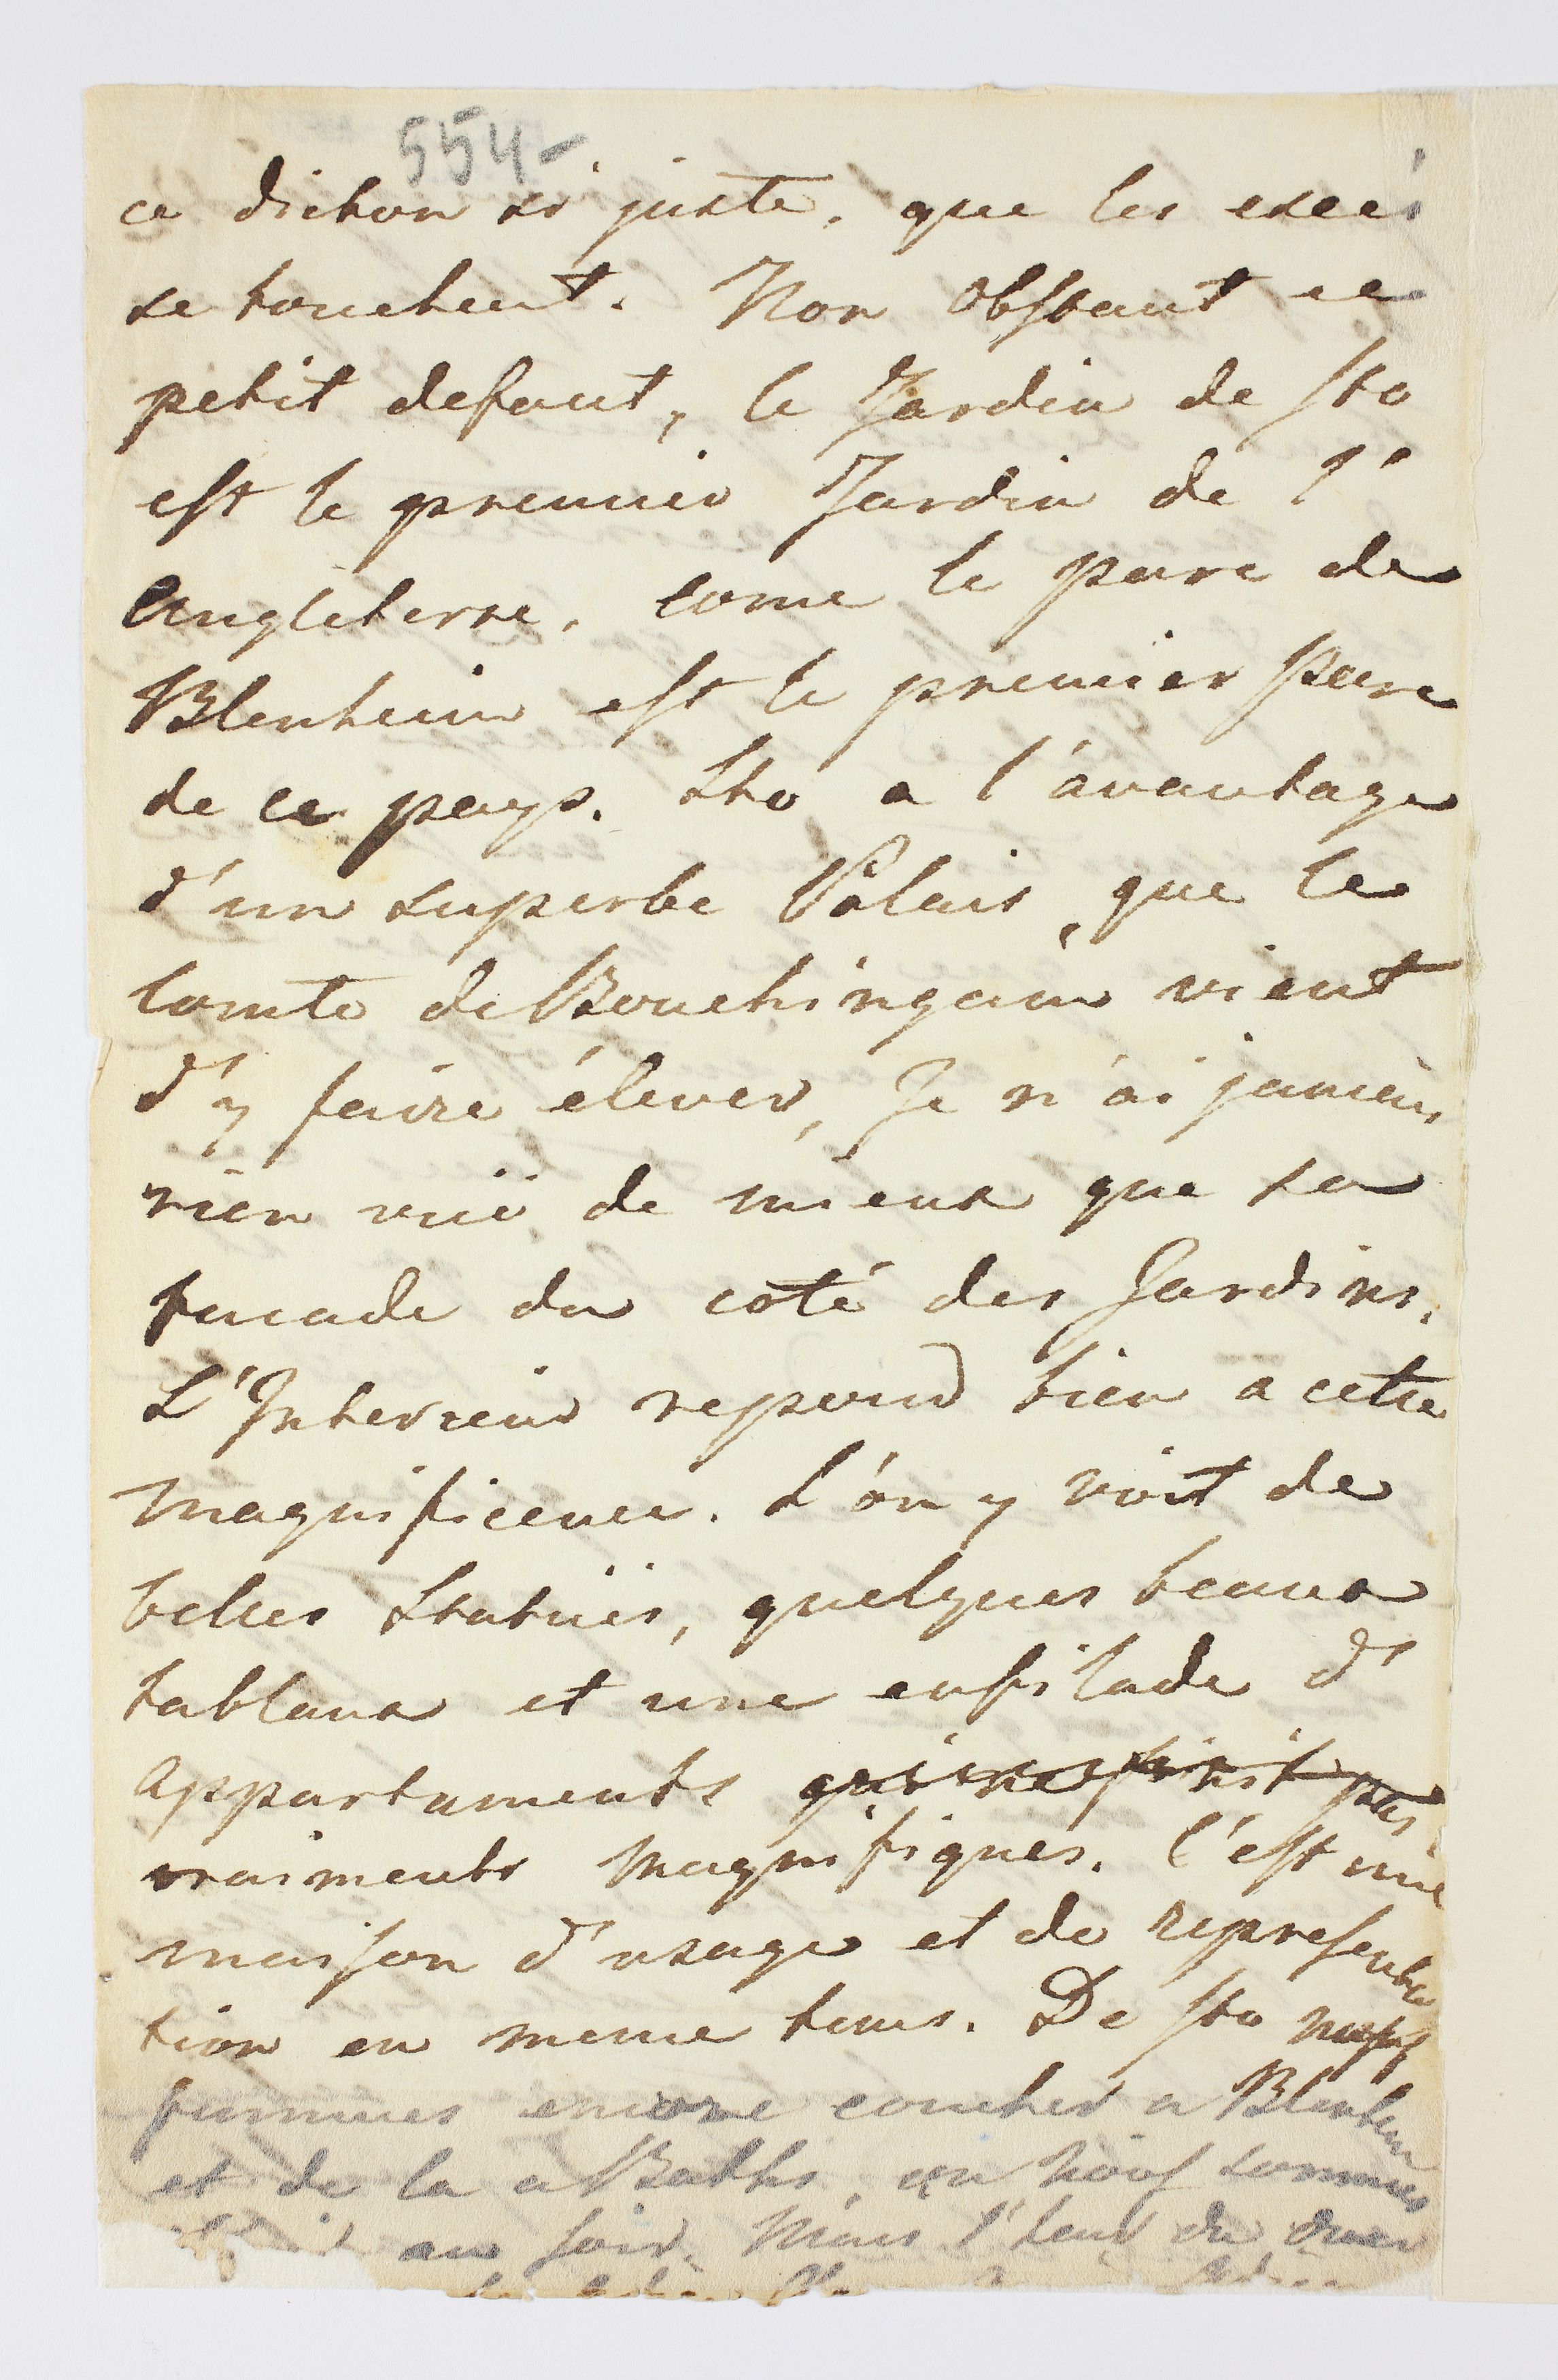 554-
ce dicton si juste, que les exces
se touchent. Non obstant ce
petit defaut, le Jardin de Sto
est le premier Jardin de l'
Angleterre, come le parc de
Blenheim est le premier parc
de ce pays. Sto a l'avantage
d'un superbe Palais, que le
Comte de Bouchingam vient
d'y faire élever, Je n'ai jamais
rien vuë de mieux que sa
facade du coté des Jardins.
L'Interieur repond bien a cette
magnificence. L'on y voit de
belles Statuës, quelques beaux
tablaux et une enfilade d'
Appartements qui ne finit pas
vraiments magnifiques. C'est une
maison d'usage et de representa
tion en meme tems. De Sto nous
fummes encore coucher a Blenheim
et de la a Baths, ou nous sommes
au soir. Mais l'heur du